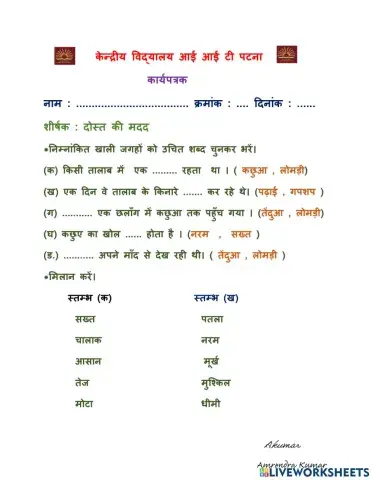 केन्द्रीय विद्यालय आई आई टी पटना
कार्यपत्रक
नाम : .................................... क्रमांक : .... दिनांक : ......
शीर्षक : दोस्त की मदद
•निम्नांकित खाली जगहों को उचित शब्द चुनकर भरें।
(क) किसी तालाब में एक ......... रहता था । ( कछुआ , लोमड़ी)
(ख) एक दिन वे तालाब के किनारे ....... कर रहे थे। (पढ़ाई , गपशप )
(ग) ........... एक छलाँग में कछुआ तक पहुँच गया । (तेंदुआ , लोमड़ी)
(घ) कछुए का खोल ...... होता है । (नरम , सख्त )
(ड.) ........... अपने माँद से देख रही थी। ( तेंदुआ , लोमड़ी )
•मिलान करें।
स्तम्भ (क) स्तम्भ (ख)
सख्त पतला
चालाक नरम
आसान मूर्ख
तेज मुश्किल
मोटा धीमी
Akumar
Amrendra Kumar
LIVEWORKSHEETS